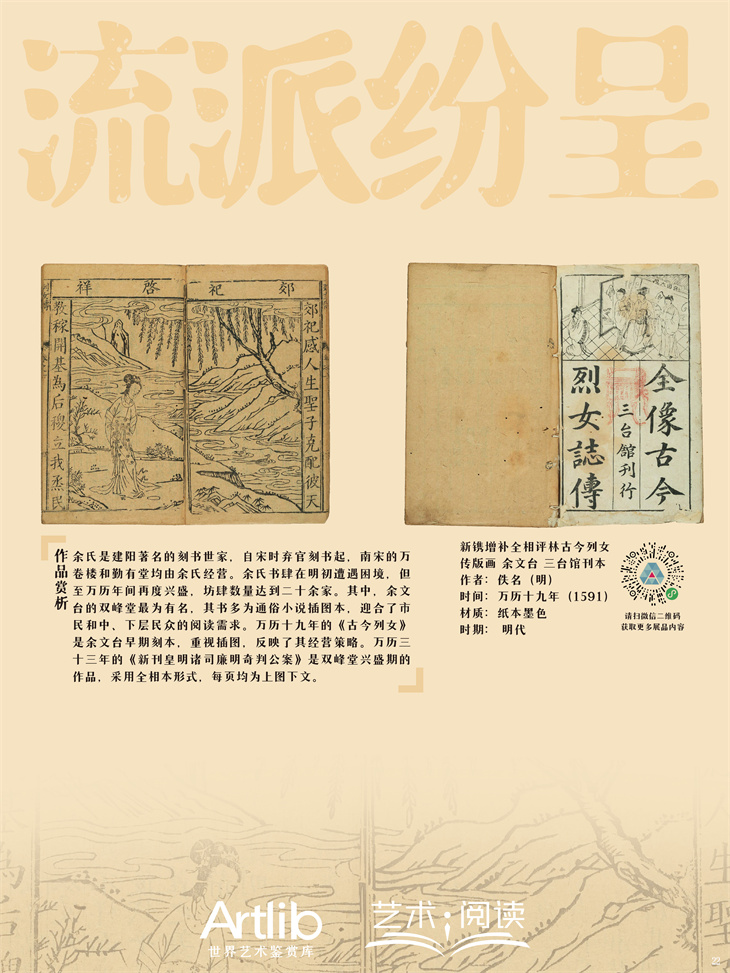 流派纷呈
郊祀啓祥
郊祀感人生聖子克配彼天
教稼開基為后稷立我烝民
全像古今
三台館刊行
烈女誌傳
作品赏析
余氏是建阳著名的刻书世家，自宋时弃官刻书起，南宋的万
卷楼和勤有堂均由余氏经营。余氏书肆在明初遭遇困境，但
至万历年间再度兴盛，坊肆数量达到二十余家。其中，余文
台的双峰堂最为有名，其书多为通俗小说插图本，迎合了市
民和中、下层民众的阅读需求。万历十九年的《古今列女》
是余文台早期刻本，重视插图，反映了其经营策略。万历三
十三年的《新刊皇明诸司廉明奇判公案》是双峰堂兴盛期的
作品，采用全相本形式，每页均为上图下文。
新镌增补全相评林古今列女
传版画 余文台 三台馆刊本
作者：佚名（明）
时间：万历十九年（1591）
材质：纸本墨色
时期： 明代
请扫微信二维码
获取更多展品内容
Artlib
世界艺术鉴赏库
艺术·阅读
22